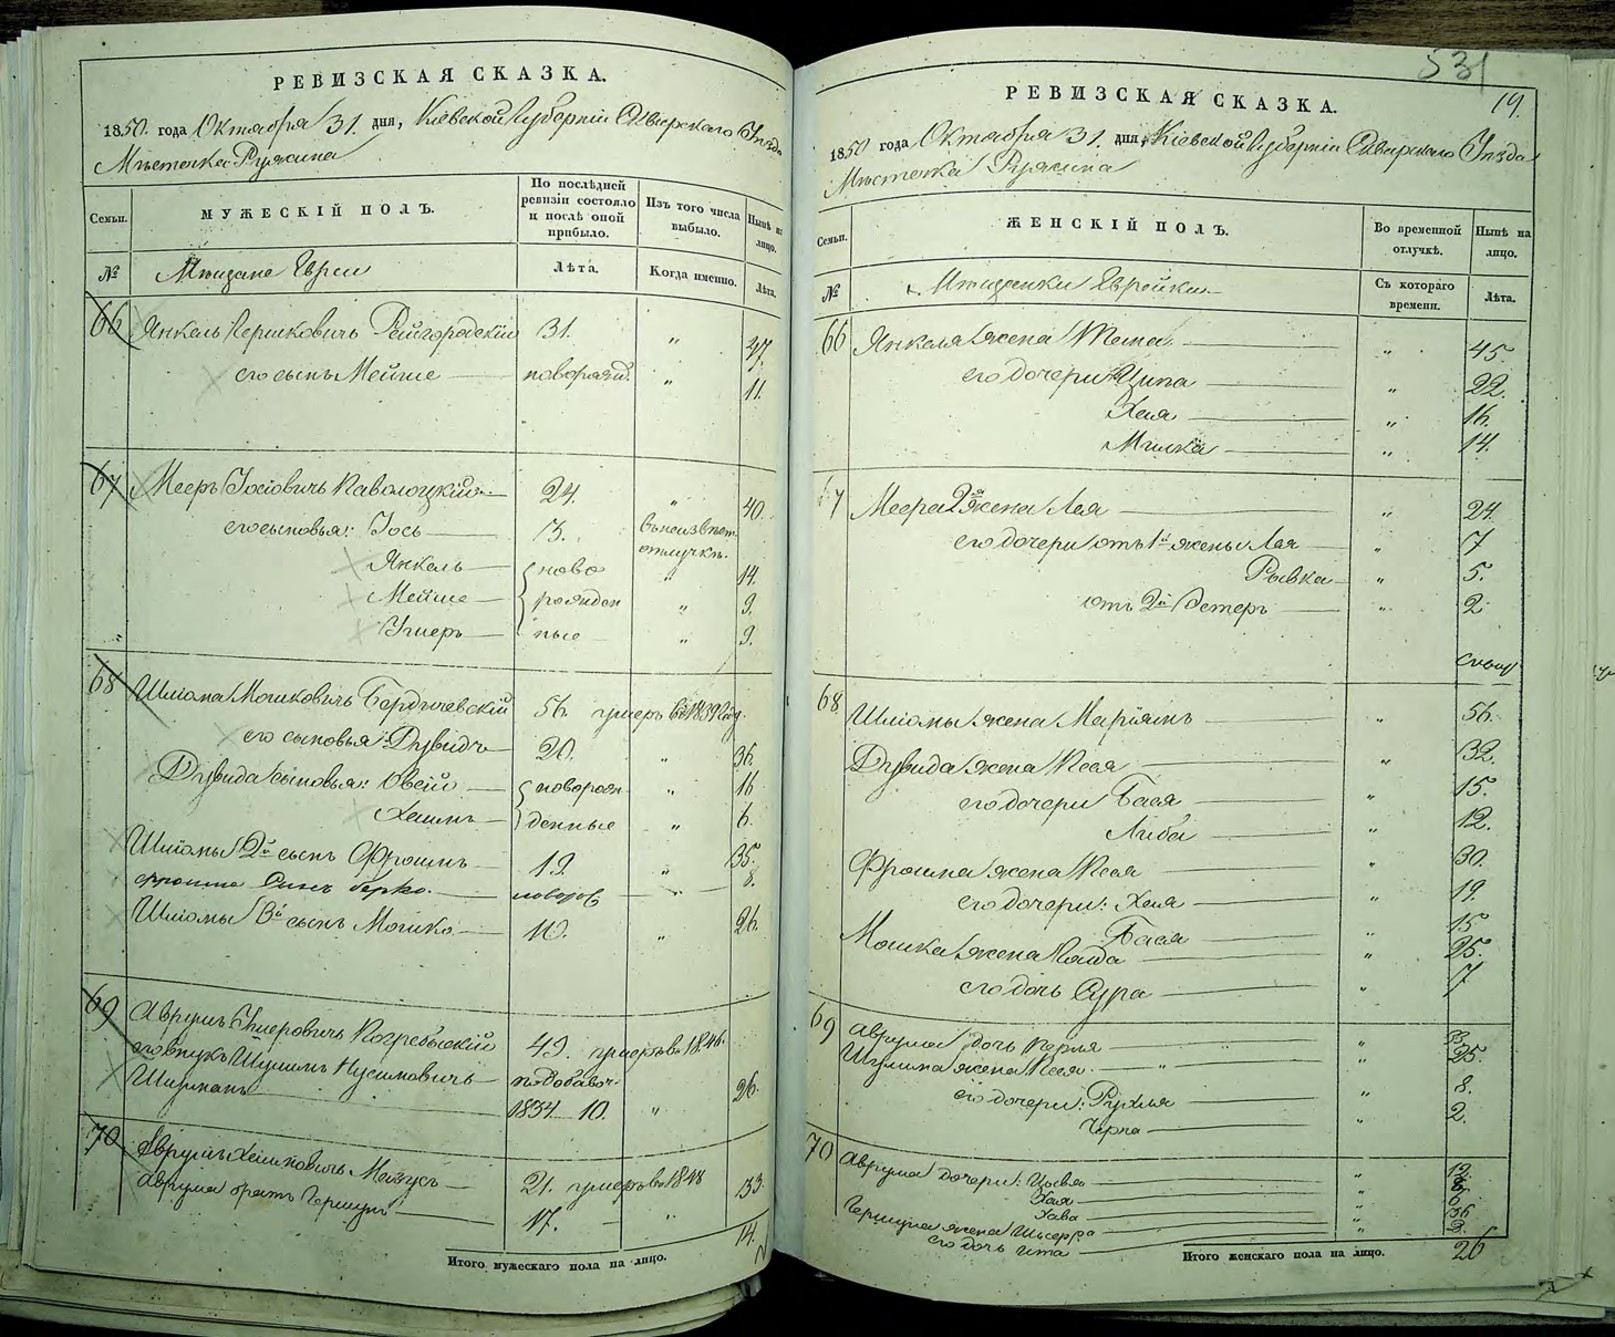 РЕВИЗСКАЯ СКАЗКА.
1850. года Октября 31. дня, Кіевской Губерніи Сквирскаго Уѣзда
Мѣстечка Ружина
Семьи.
МУЖЕСКІЙ ПОЛЪ.
По послѣдней ревизіи состояло и послѣ оной прибыло.
Изъ того числа выбыло.
Нынѣ на лицо.
№
Мѣщане Евреи
Лѣта.
Когда именно.
Лѣта.
66 Янкель Гершковичъ Райгородскій 31. " 47.
его сынъ Мейше новорожд. " 11.
67 Мееръ Іосіовичъ Паволоцкій 24. " 40.
его сыновья: Іось 13. въ неизвѣст. отлучкѣ.
Янкель ново " 14.
Мейше рожден " 9.
Ушеръ ные " 9.
68 Шліома Мошковичъ Бердичевскій 56. умеръ въ 1839 год.
его сыновья: Дувидъ 20. " 36.
Дувида сыновья: Овсій новорож " 16
Хаимъ денные " 6.
Шліомы 2й сынъ Фроимъ 19. " 35.
фроима сынъ берко. новорож " 8.
Шліомы 3й сынъ Мошко 10. " 26.
69 Аврумъ Ушеровичъ Погребыскій 49. умеръ въ 1846.
его внукъ Шулимъ Нусимовичъ по добавоч.
Шурманъ 1834 10. " 26.
70 Аврумъ Хаимовичъ Мазусъ 21. умеръ въ 1848
Аврума братъ Гершунъ 17. " 33
Итого мужескаго пола на лицо. 14.
531
19.
РЕВИЗСКАЯ СКАЗКА.
1850 года Октября 31. дня, Кіевской Губерніи Сквирскаго Уѣзда
Мѣстечка Ружина
Семьи.
ЖЕНСКІЙ ПОЛЪ.
Во временной отлучкѣ.
Нынѣ на лицо.
№
Мѣщанки Еврейки
Съ котораго времени.
Лѣта.
66 Янкеля жена " 45.
его дочери: Ципа " 22.
Хая " 16.
Милка " 14.
67 Меера 2я жена Лея " 24.
его дочери отъ 1й жены Лая " 7
Рывка " 5.
отъ 2й Эстеръ " 2
68 Шліомы жена Маріямъ " 56.
Дувида жена Песя " 32.
его дочери Бася " 15.
Либа " 12.
Фроима жена Песя " 30.
его дочери: Хая " 19.
Бася " 15
Мошка жена " 25.
его дочь Сура " 7
69 Аврума дочь Перля " 33
Шулима жена Песя " 25.
его дочери: Рухля " 8.
Черна " 2.
70 Аврума дочери: Цывья " 12.
Хая "
Хава " 6.
Гершуна жена " 36
его дочь Ита "
Итого женскаго пола на лицо. 26